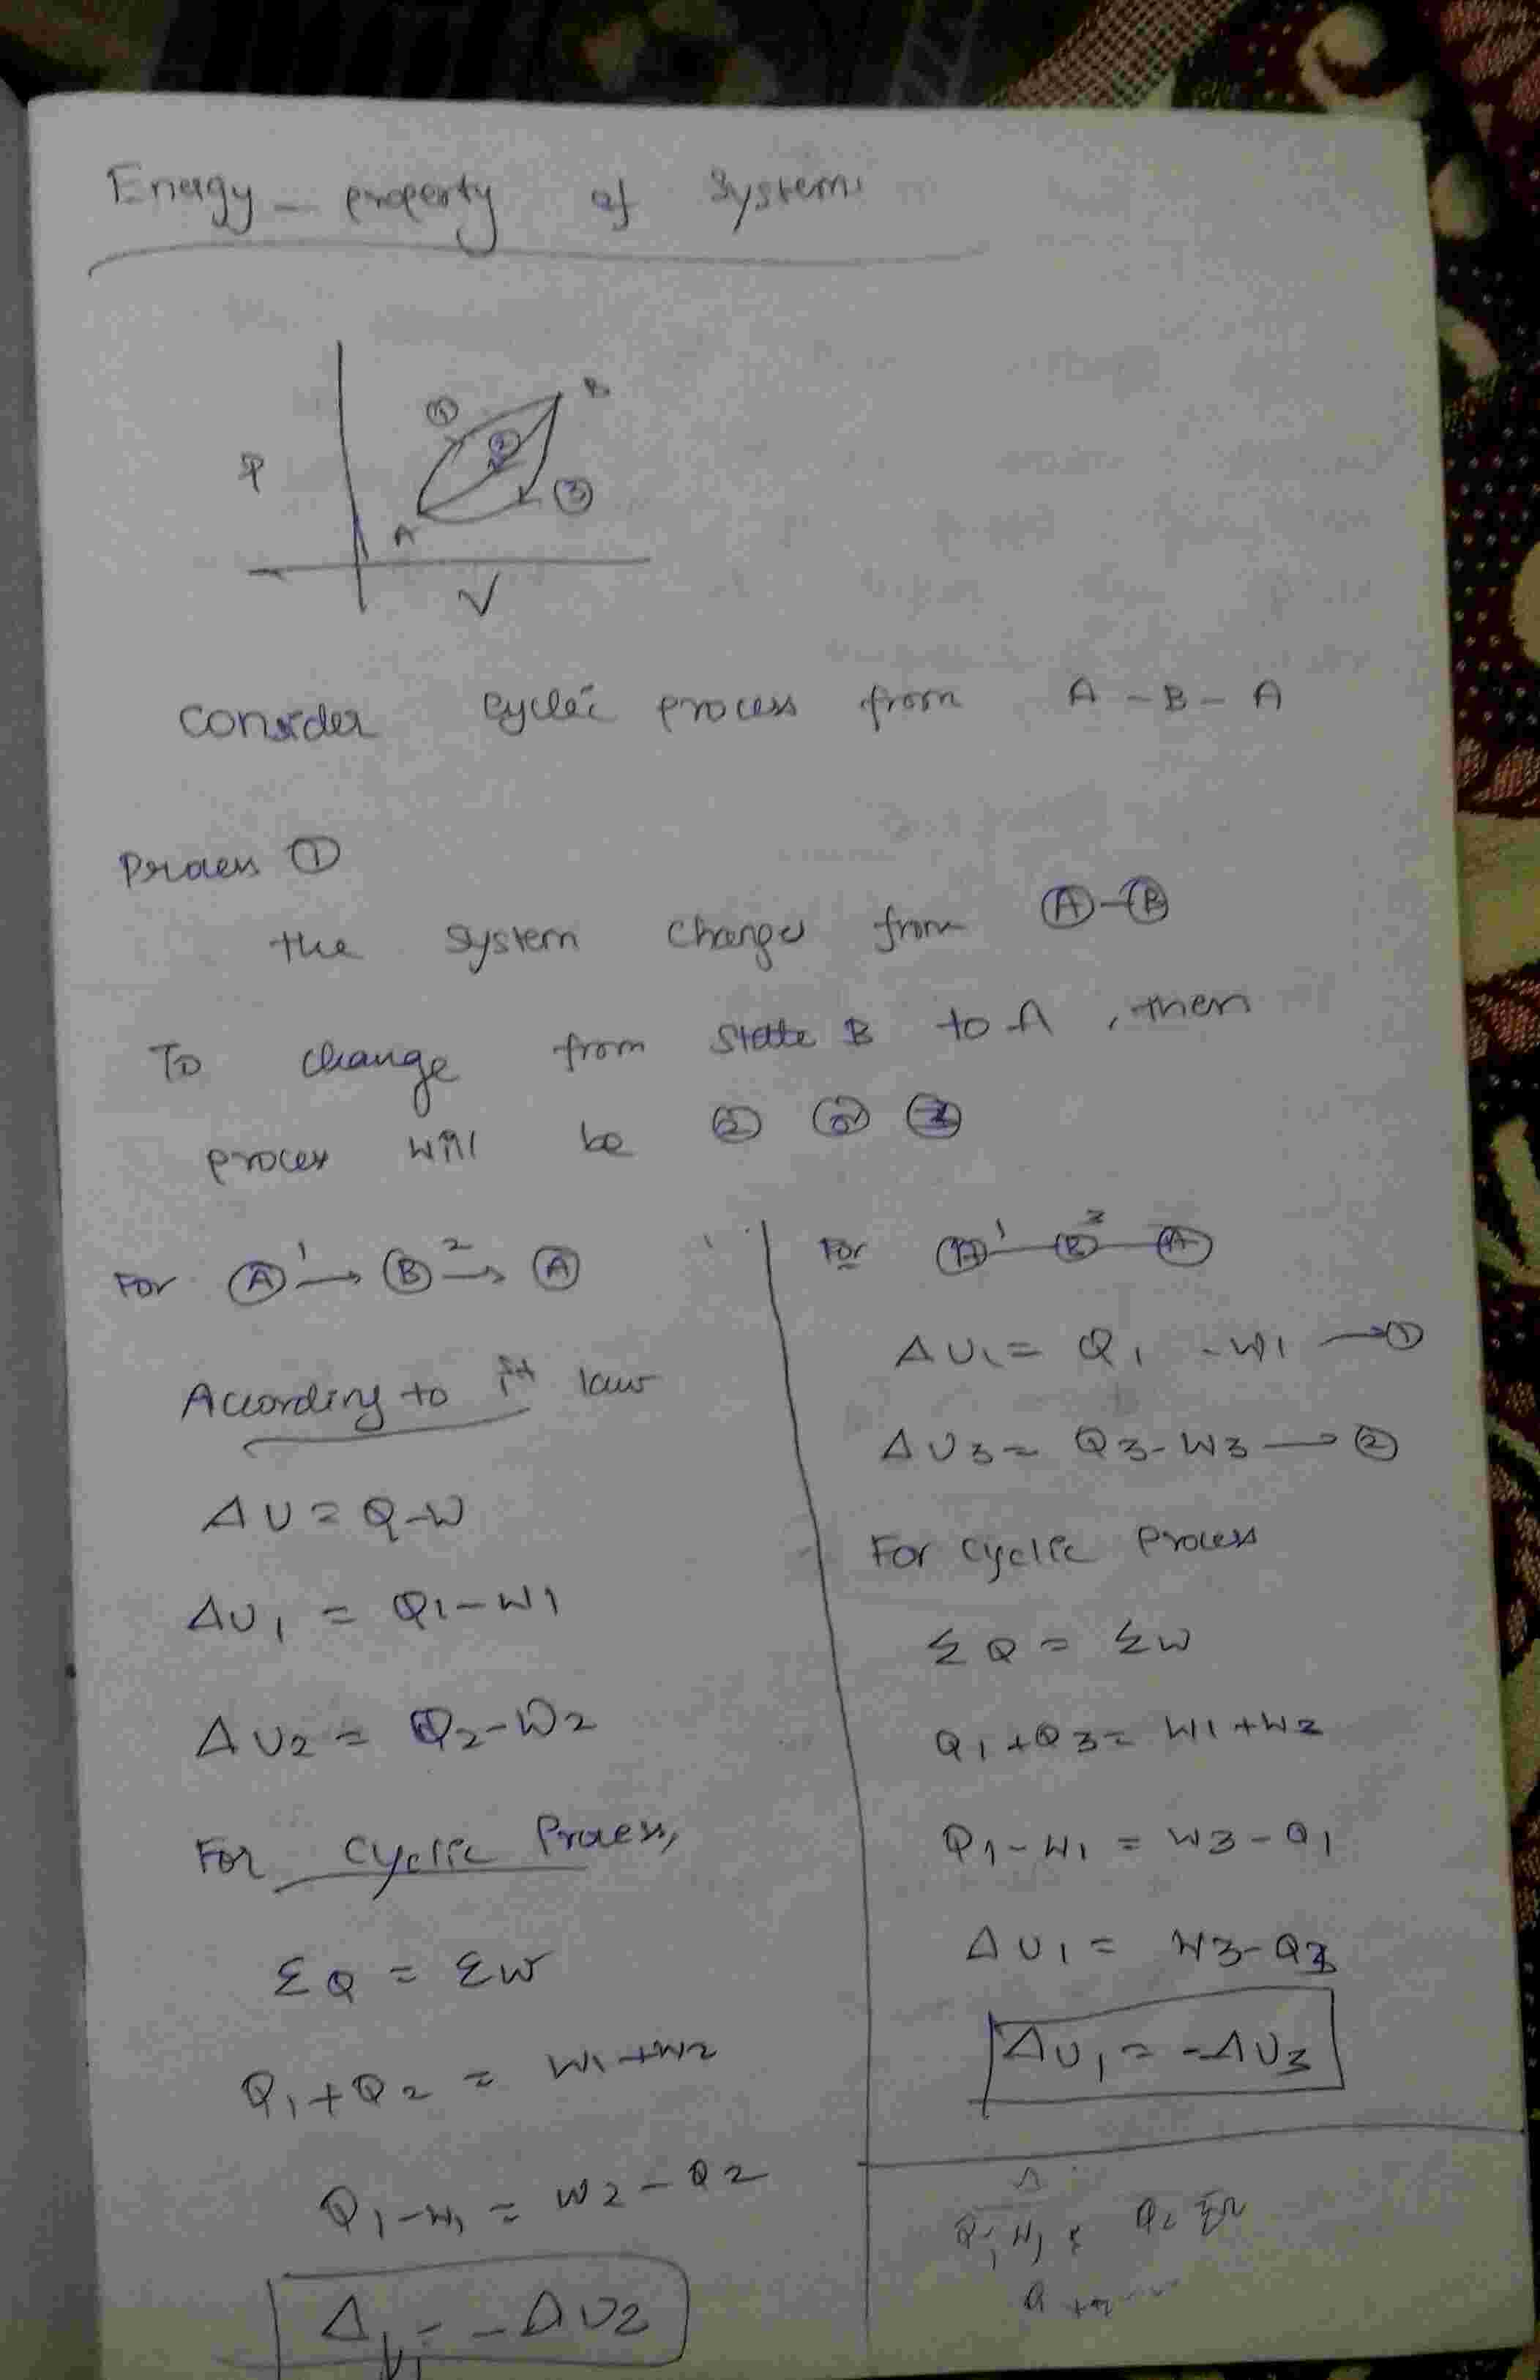 Energy - property of system
①
B
②
P
③
A
V
consider cyclic process from A - B - A
Process ①
the system changes from Ⓐ-Ⓑ
To change from state B to A, then
process will be ② ③
For Ⓐ 1→ Ⓑ 2→ Ⓐ
According to 1st law
ΔU = Q-W
ΔU1 = Q1-W1
ΔU2 = Q2-W2
For cyclic Process,
ΣQ = ΣW
Q1+Q2 = W1+W2
Q1-W1 = W2-Q2
ΔU1 = -ΔU2
For Ⓐ 1— Ⓑ 3— Ⓐ
ΔU1 = Q1 -W1 →①
ΔU3 = Q3-W3 →②
For cyclic Process
ΣQ = ΣW
Q1+Q3 = W1+W3
Q1-W1 = W3-Q1
ΔU1 = W3-Q3
ΔU1 = -ΔU3